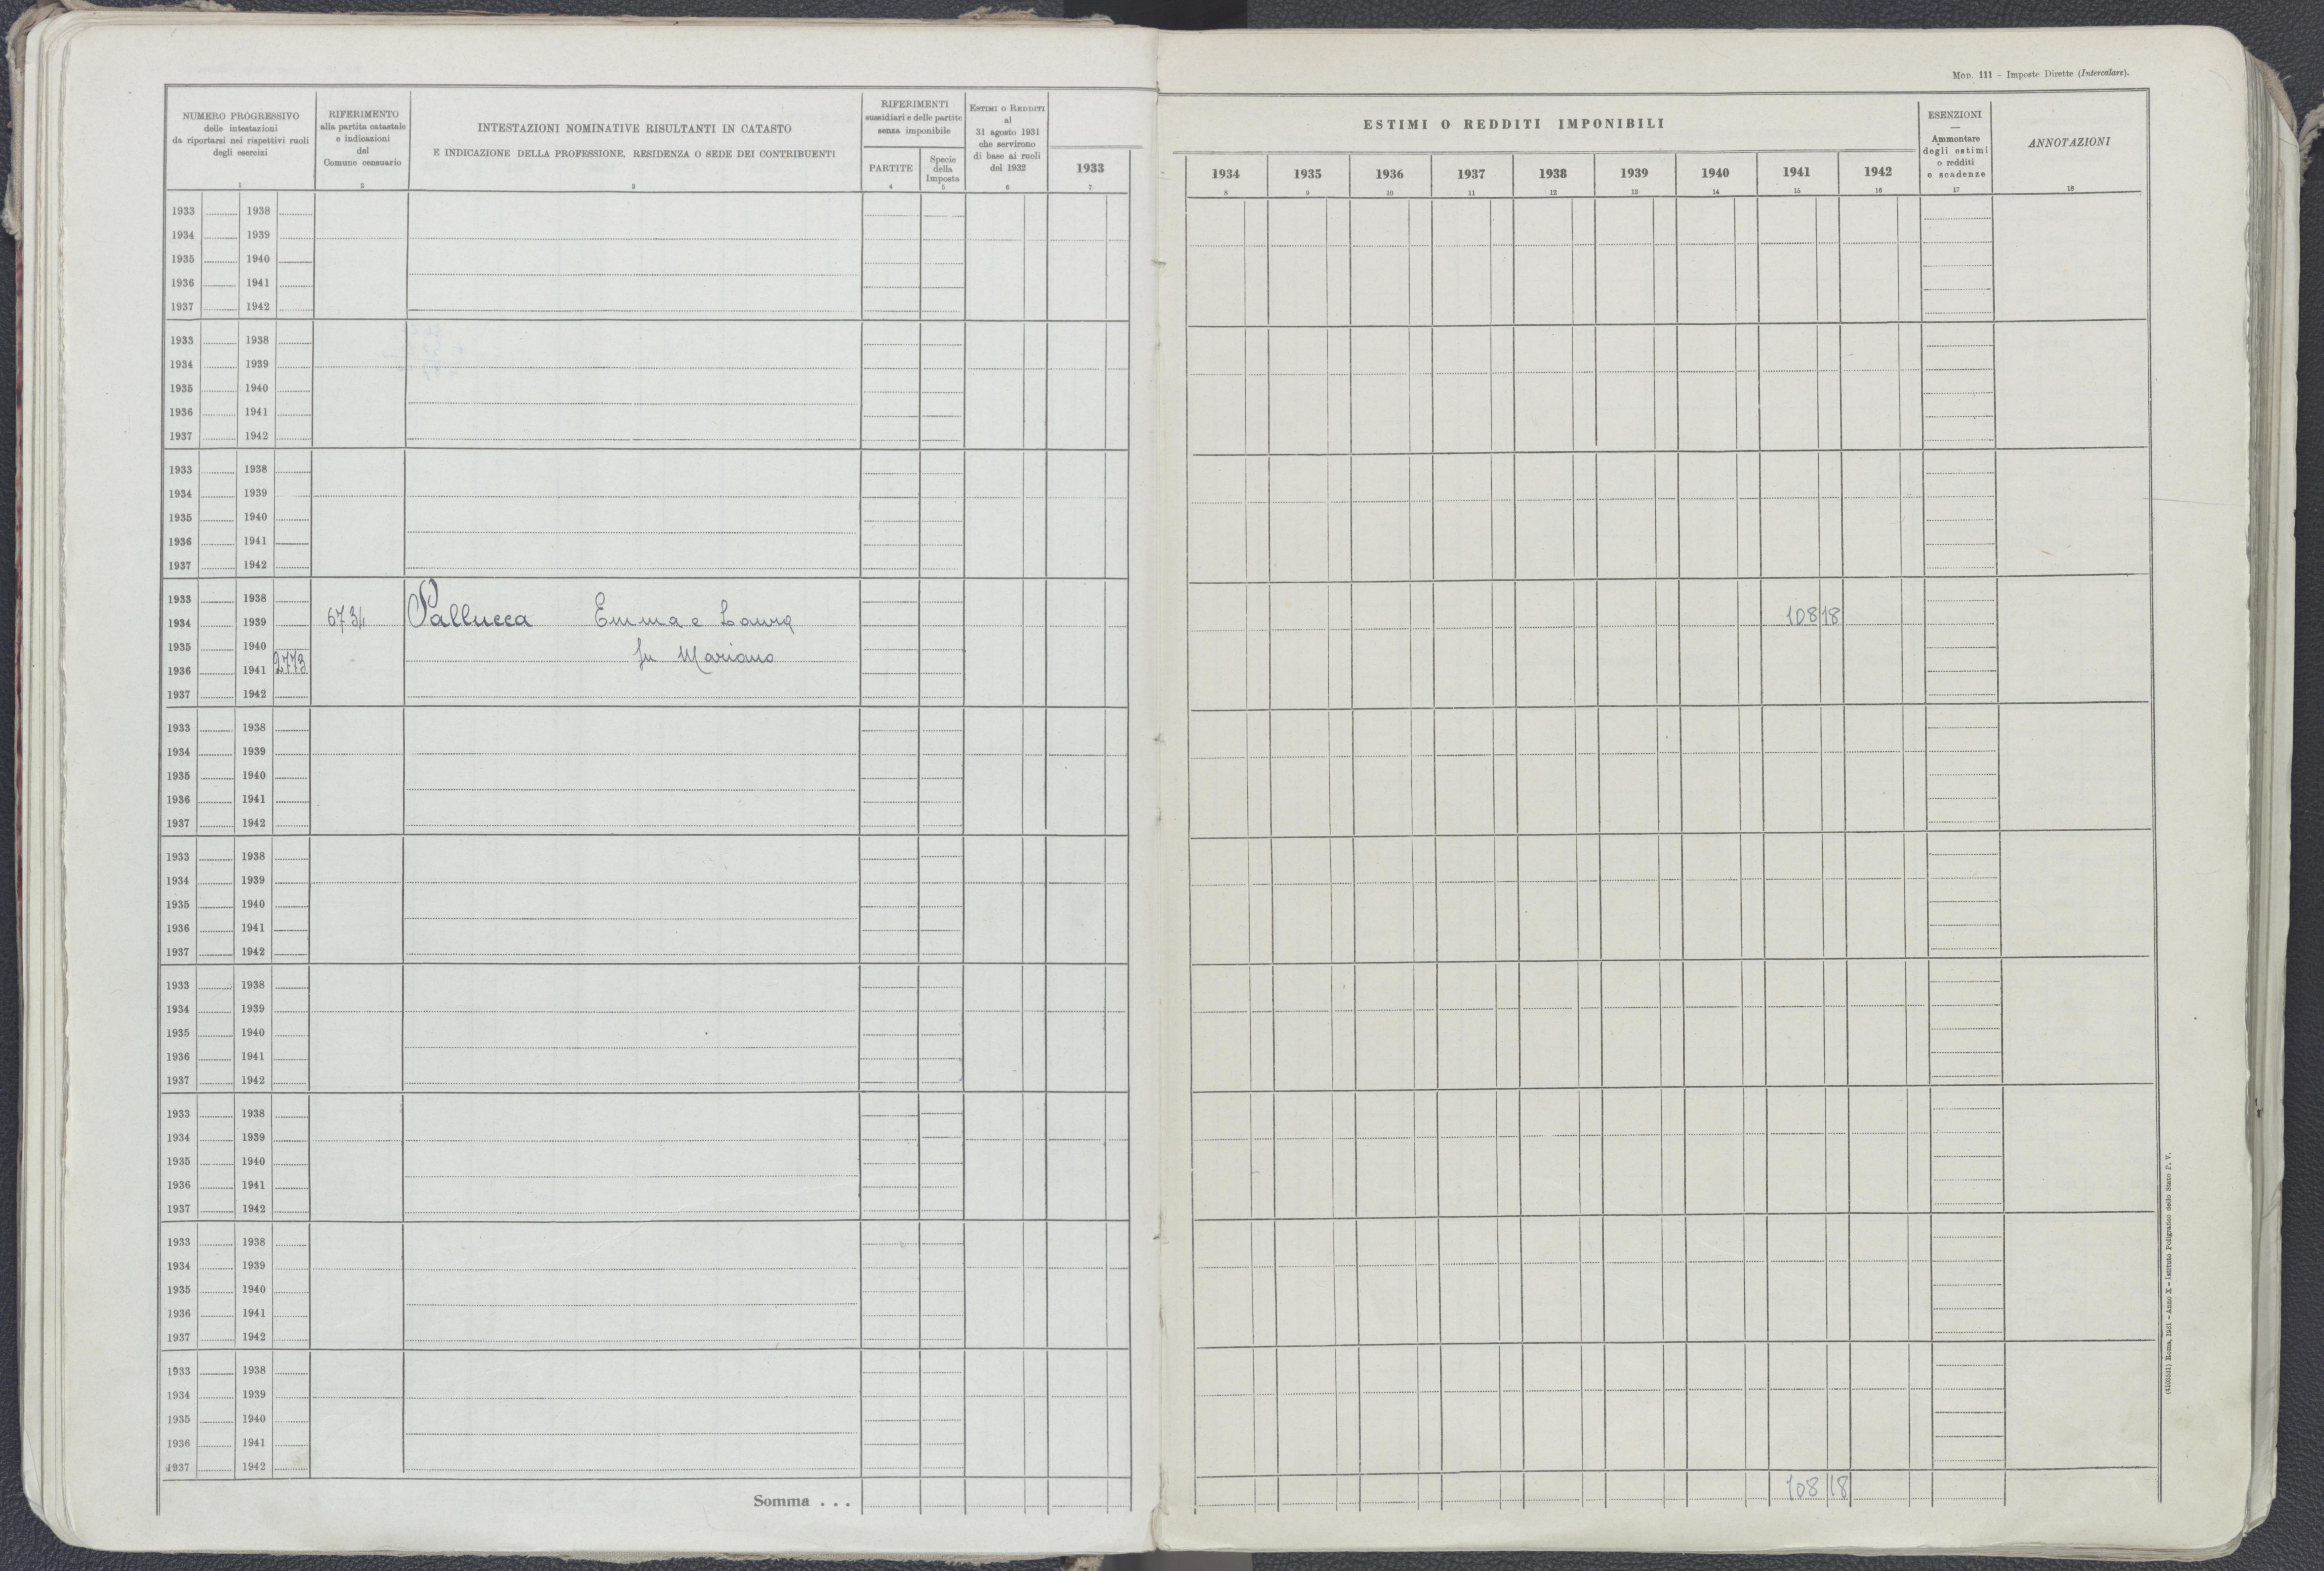 Mod. 111 – Imposte Dirette (Intercalare).
NUMERO PROGRESSIVO
delle intestazioni
da riportarsi nei rispettivi ruoli
degli esercizi
1
RIFERIMENTO
alla partita catastale
e indicazioni
del
Comune censuario
2
INTESTAZIONI NOMINATIVE RISULTANTI IN CATASTO
E INDICAZIONE DELLA PROFESSIONE, RESIDENZA O SEDE DEI CONTRIBUENTI
3
RIFERIMENTI
sussidiari e delle partite
senza imponibile
PARTITE
4
Specie
della
Imposta
5
ESTIMI O REDDITI
al
31 agosto 1931
che servirono
di base ai ruoli
del 1932
6
1933
7
ESTIMI O REDDITI IMPONIBILI
1934 1935 1936 1937 1938 1939 1940 1941 1942
8 9 10 11 12 13 14 15 16
ESENZIONI
—
Ammontare
degli estimi
o redditi
e scadenze
17
ANNOTAZIONI
18
1933 1938
1934 1939
1935 1940
1936 1941
1937 1942
1933 1938
1934 1939
1935 1940
1936 1941
1937 1942
1933 1938
1934 1939
1935 1940
1936 1941
1937 1942
1933 1938
1934 1939 6734 Pallucca Emma e Laura 108 18
1935 1940 fu Mariano
1936 1941 2773
1937 1942
1933 1938
1934 1939
1935 1940
1936 1941
1937 1942
1933 1938
1934 1939
1935 1940
1936 1941
1937 1942
1933 1938
1934 1939
1935 1940
1936 1941
1937 1942
1933 1938
1934 1939
1935 1940
1936 1941
1937 1942
1933 1938
1934 1939
1935 1940
1936 1941
1937 1942
1933 1938
1934 1939
1935 1940
1936 1941
1937 1942
Somma . . . 108 18
Roma, 1931 – Anno X – Istituto Poligrafico dello Stato P. V.